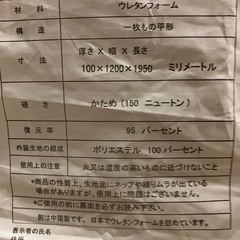 材料 ウレタンフォーム
構造 一枚もの平形
厚さ X 幅 X 長さ
寸法
100×1200×1950 ミリメートル
硬さ かため (150 ニュートン)
復元率 95 パーセント
外装生地の組成 ポリエステル 100 パーセント
使用上の注意 火又は温度の高いものに近づけないこと
*商品の性質上、生地面にネップや織りムラが出ている
場合がありますが、使用上に問題はございません。
*ご使用の前に裏面を必ずお読み下さい。
側は中国製です。日本でウレタンフォームを詰めています。
表示者の氏名